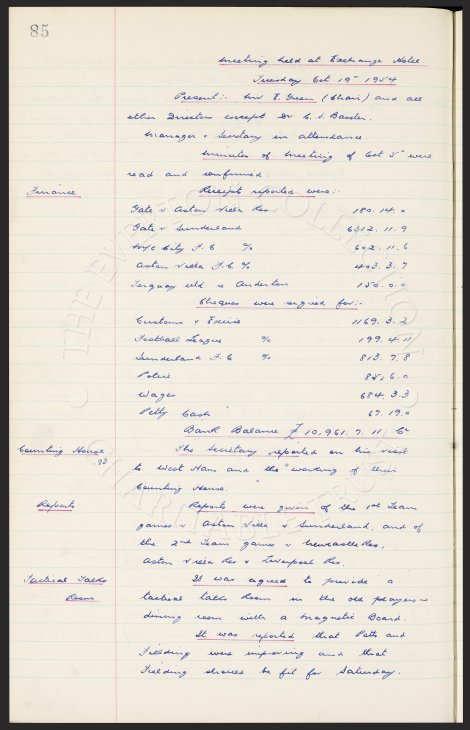 85
Meeting held at Exchange Hotel
Tuesday Oct 19th 1954
Present:- Mr E. Green (Chair) and all
other Directors except Dr C. S. Baxter.
Manager & Secretary in attendance.
Minutes of Meeting of Oct 5th were
read and confirmed.
Finance
Receipts reported were:-
Gate v Aston Villa Res 180. 14. 0
Gate v Sunderland 6312. 11. 9
M/C City F.C % 602. 11. 6
Aston Villa F.C % 403. 3. 7
Torquay Utd re Anderton 150. 0. 0
Cheques were signed for:-
Customs & Excise 1169. 3. 2
Football League % 199. 4. 11
Sunderland F.C % 813. 7. 8
Police 85. 6. 0
Wages 684. 3. 3
Petty Cash 67. 19. 0
Bank Balance £ 10,961. 7. 11 Cr
Counting House
The Secretary reported on his visit
to West Ham and the "working of their
Counting House."
Reports
Reports were given of the 1st Team
games v Aston Villa & Sunderland, and of
the 2nd Team games v Newcastle Res,
Aston Villa Res & Liverpool Res.
Tactical Talks
Room
It was agreed to provide a
tactical talks Room in the old players
dining room with a Magnetic Board.
It was reported that Potts and
Fielding were improving and that
Fielding should be fit for Saturday.
© THE EVERTON COLLECTION
CHARITABLE TRUST